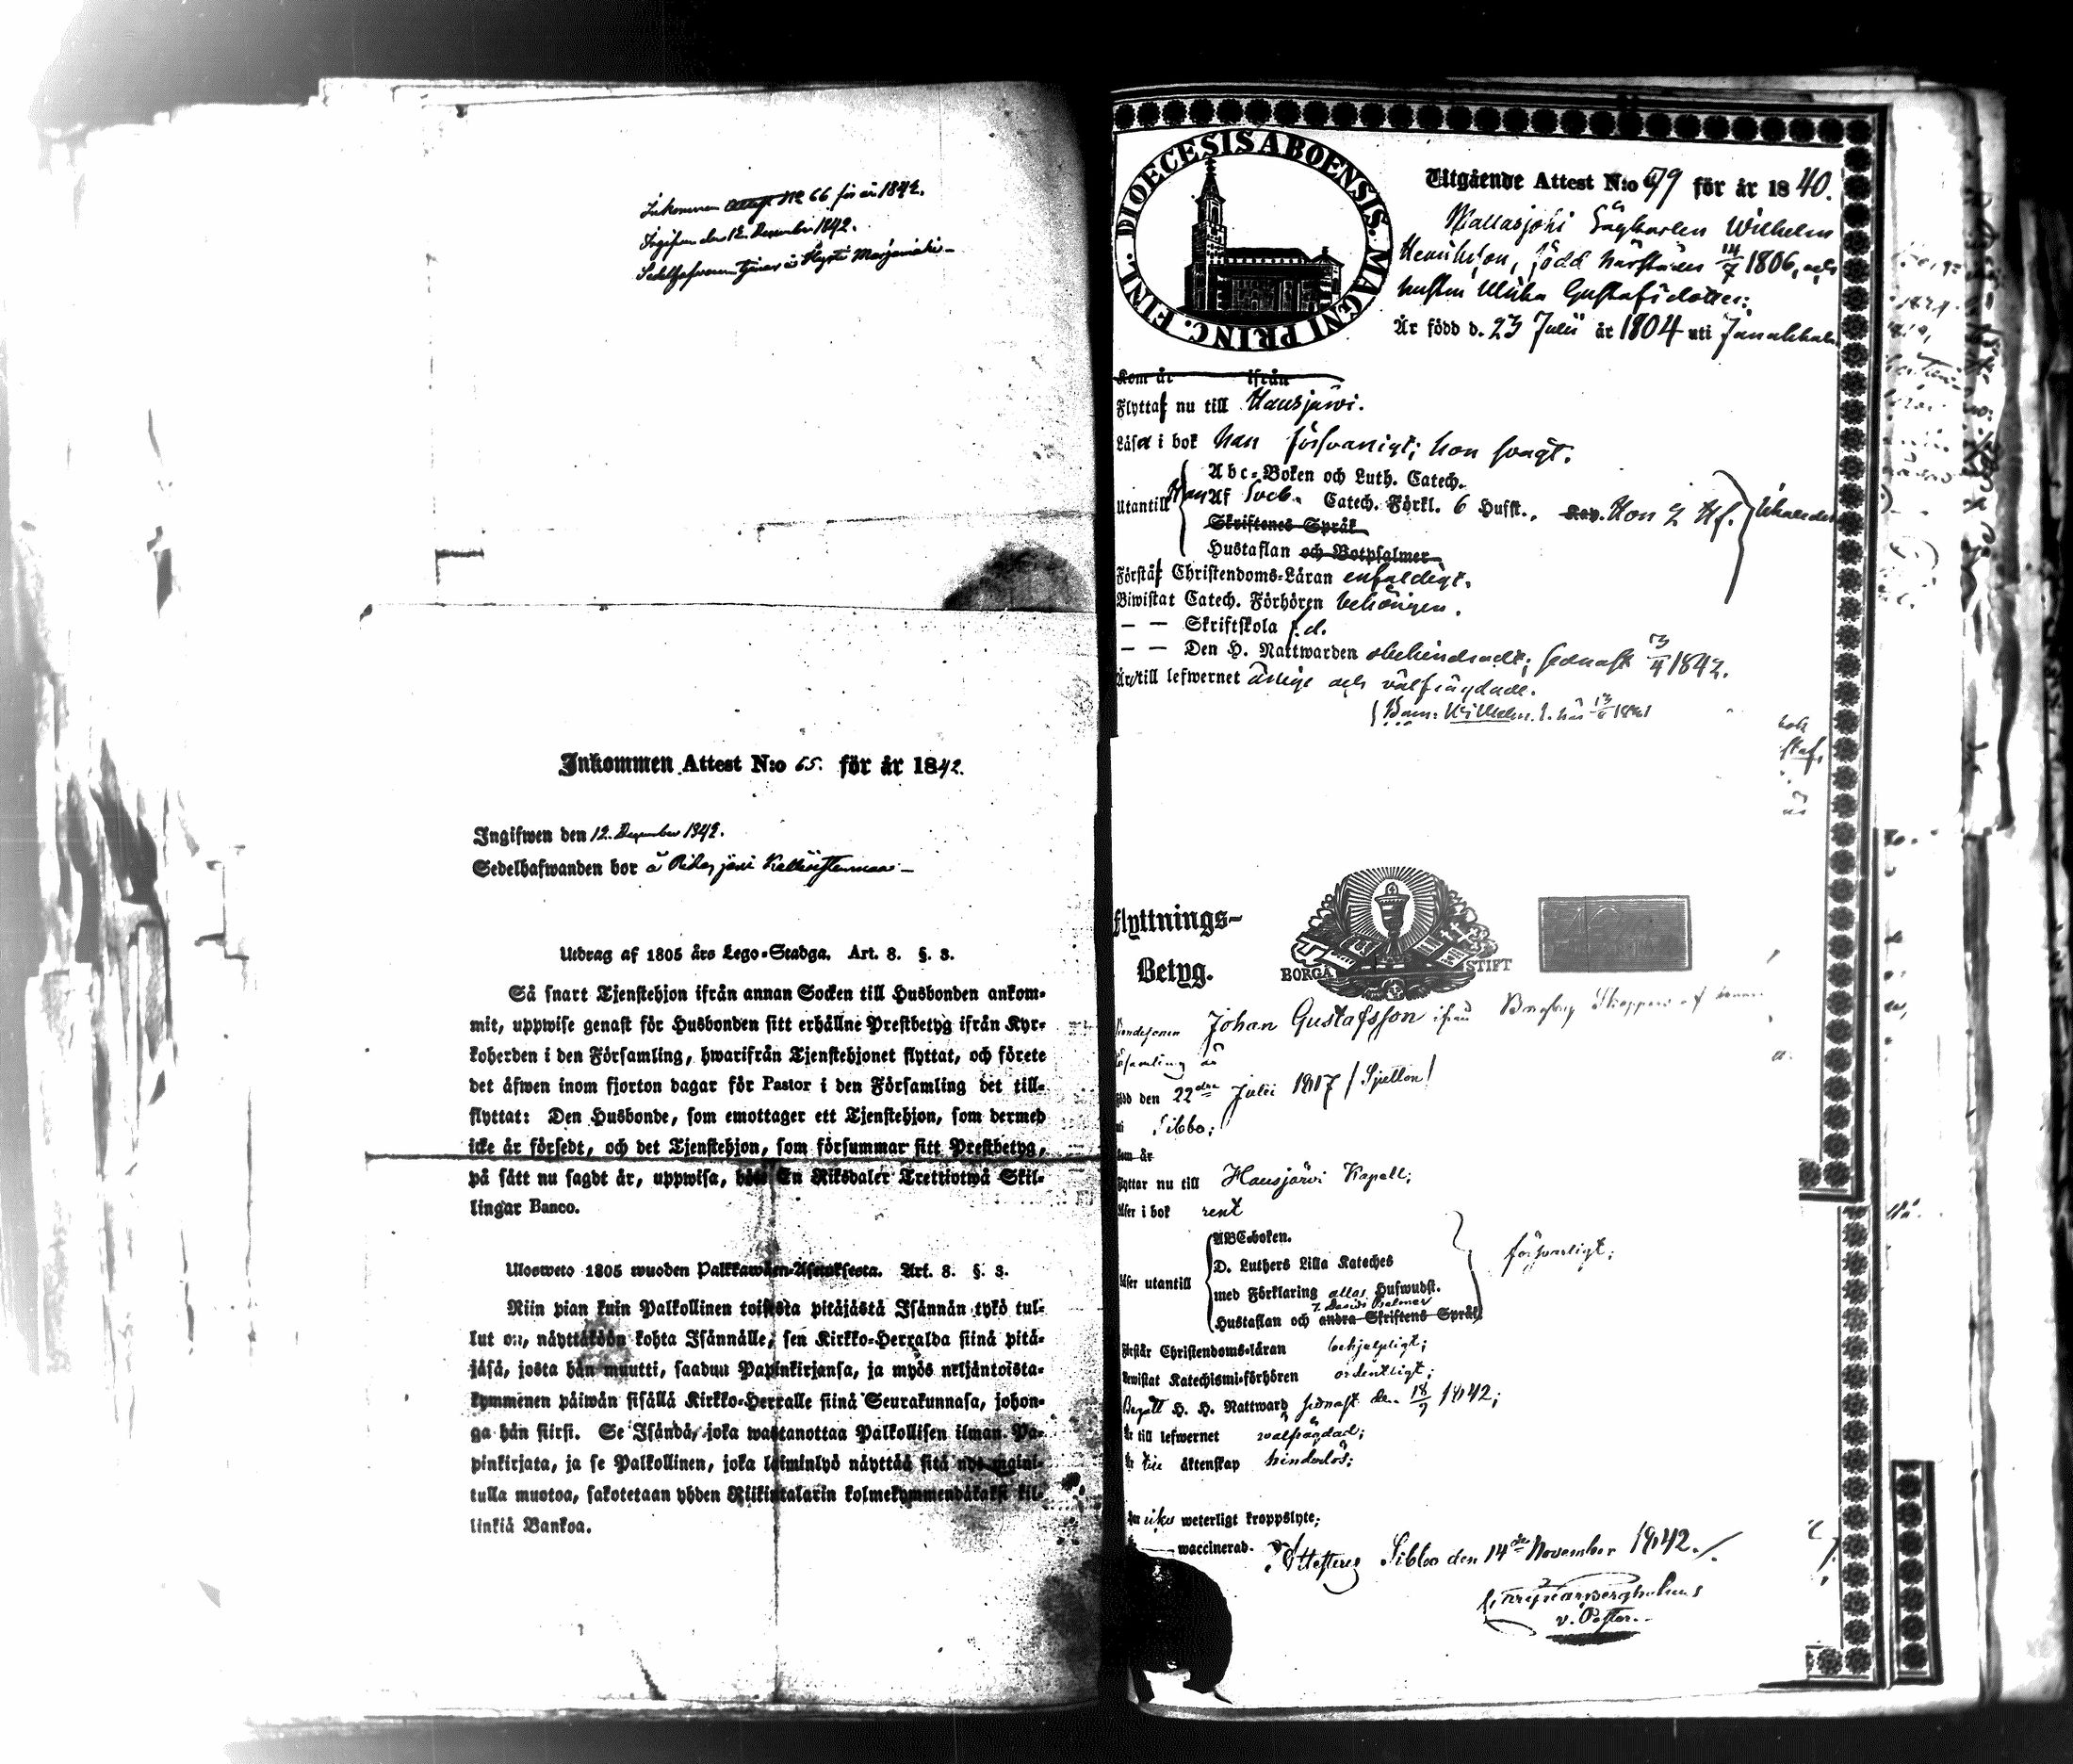 Inkommen Attest No 66 för år 1842.
Ingifven den 12 December 1842.
Sedelhafwanden tjenar å
Inkommen Attest N:o 65. för år 1842.
Ingifwen den 12. December 1842.
Sedelhafwanden bor å
Utdrag af 1805 års Lego-Stadga. Art. 8. §. 3.
Så snart Tjenstehjon ifrån annan Socken till Husbonden ankom-
mit, uppwise genast för Husbonden sitt erhållne Prestbetyg ifrån Kyr-
koherden i den Församling, hwarifrån Tjenstehjonet flyttat, och förete
det äfwen inom fjorton dagar för Pastor i den Församling det till-
flyttat: Den Husbonde, som emottager ett Tjenstehjon, som dermed
icke är försedt, och det Tjenstehjon, som försummar sitt Prestbetyg,
på sätt nu sagdt är, uppwisa, böte En Riksdaler Trettiotwå Skil-
lingar Banco.
Ulosweto 1805 wuoden Palkkawäen-Asetuksesta. Art. 8. §. 3.
Niin pian kuin Palkollinen toisesta pitäjästä Isännän tykö tul-
lut on, näyttäköön kohta Isännälle, sen Kirkko-Herralda siinä pitä-
jäsä, josta hän muutti, saadun Papinkirjansa, ja myös neljäntoista-
kymmenen päiwän sisällä Kirkko-Herralle siinä Seurakunnasa, johon-
ga hän siirsi. Se Isändä, joka wastanottaa Palkollisen ilman Pa-
pinkirjata, ja se Palkollinen, joka laiminlyö näyttää sitä nyt mainit-
tulla muotoa, sakotetaan yhden Riikintalarin kolmekymmendäkaksi kil-
linkiä Bankoa.
DIOECESIS ABOENSIS. MAGNI PRINC. FINL.
Utgående Attest N:o 79 för år 1840.
Sågkarlen Wilhelm
Henriksson, född härstädes 14/7 1806, och
hustru Ulrika Gustafsdotter:
Är född d. 23 Julii år 1804 uti Janakkala
Kom år ifrån
Flyttar nu till Hausjärwi.
Läser i bok han försvarligt; hon svagt.
Abc-Boken och Luth. Catech.
Utantill Han Af Catech. Förkl. 6 Hufst., Hon 2 Hf.
Skriftenes Språk
Hustaflan och Botpsalmer
Förstår Christendoms-Läran enfaldigt.
Biwistat Catech. Förhören behörigen.
— — Skriftskola
— — Den H. Nattwarden obehindradt; sednast 1842.
Är till lefwernet ärlige och välfrägdade.
Barn: Wilhelm
Flyttnings-
Betyg.
BORGÅ STIFT
Johan Gustafsson ifrån
Församling är
född den 22dra Julii 1817 / Sjutton /
uti Sibbo;
Kom år
Flyttar nu till Hausjärvi Kapell;
Läser i bok rent
ABC-boken.
D. Luthers Lilla Kateches
Läser utantill med Förklaring allas Hufwudst. försvarligt;
7. Davids Psalmer
Hustaflan och andra Skriftens Språk
Förstår Christendoms-läran behjelpligt;
Bewistat Katechismi-förhören ordentligt;
Begått H. H. Nattward sednast den 18/9 1842;
Är till lefwernet wälfrägdad;
Är till äktenskap hinderlös;
Har icke weterligt kroppslyte;
Är waccinerad. Attesteras Sibbo den 14de November 1842.
v. Pastor.